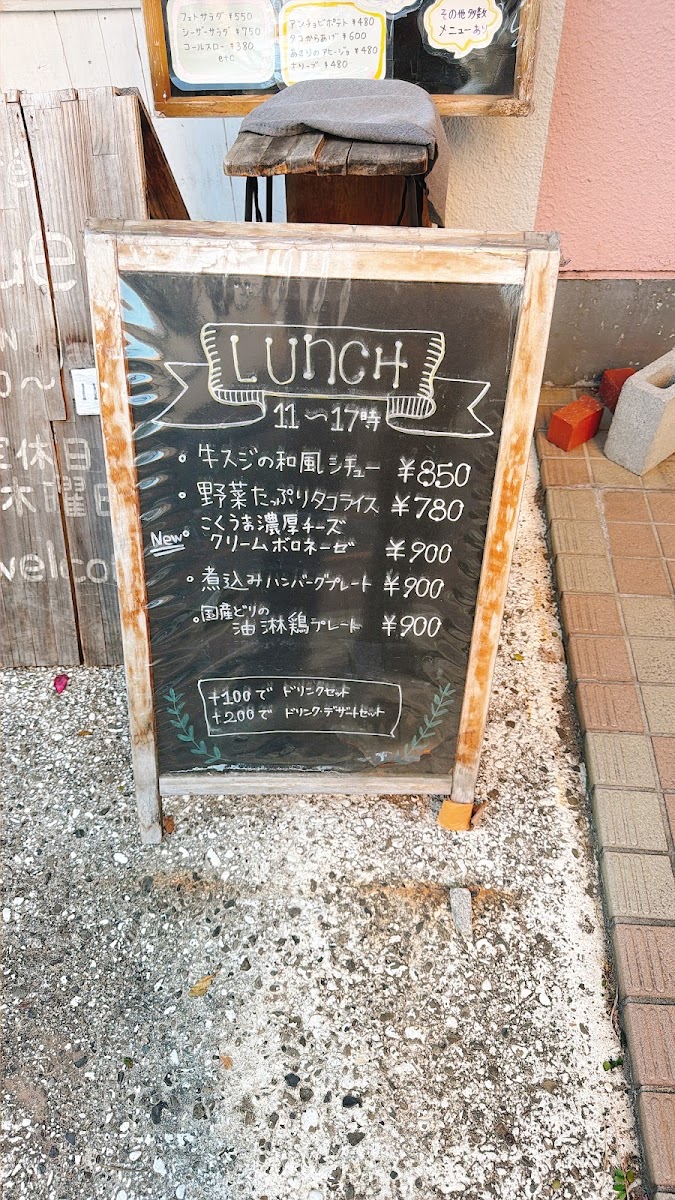 フェトサラダ ¥550
シーザーサラダ ¥750
コールスロー ¥380
etc
アンチョビポテト ¥480
タコからあげ ¥600
あさりのアヒージョ ¥480
オリーブ ¥480
その他多数
メニューあり
ue
0〜
11
定休日
木曜日
welcom
LUNCH
11〜17時
牛スジの和風シチュー ¥850
野菜たっぷりタコライス ¥780
New
こくうま濃厚チーズ
クリームボロネーゼ ¥900
煮込みハンバーグプレート ¥900
国産どりの
油淋鶏プレート ¥900
+100で ドリンクセット
+200で ドリンク・デザートセット